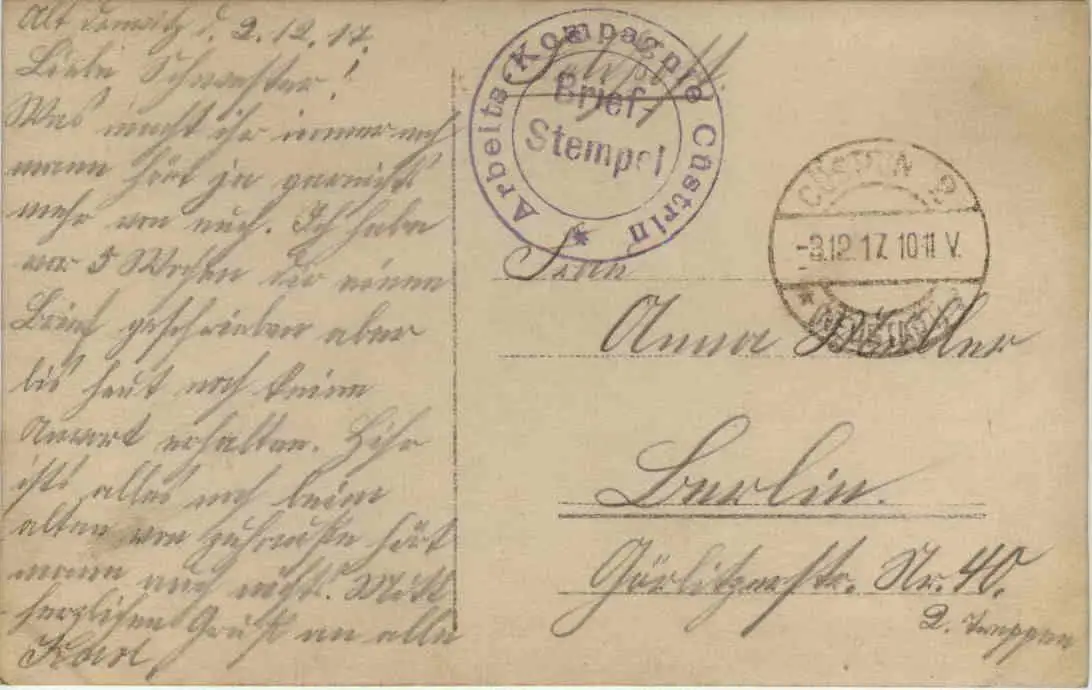 Alt Drewitz d. 2.12.17.
Liebe Schwester!
Was macht ihr immer noch
mann hört ja garnichts
mehr von euch. Ich habe
vor 5 Wochen dir einen
Brief geschrieben aber
bis heut noch keine
Anwort erhalten. Hihr
ists alles noch beim
alten von zuhause hört
mann auch nichts. Mitt
herzlichen Gruß an alle
Karl
Arbeits-Kompagnie Cüstrin
Brief-
Stempel
CÜSTRIN 2
-3.12.17. 10-11 V.
* (NEUSTADT)
Frau
Anna Müller
Berlin.
Görlitzerstr. Nr. 40.
2. Treppen